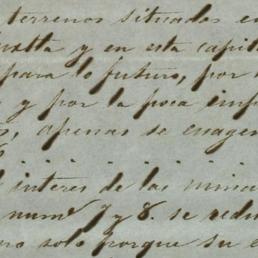 terrenos situados en
y en esta capit
para lo futuro, por
y por la poca imp
, apenas se enagen
. . . . . . . .
interes de las minas
num.º 7 y 8. se redu
solo porque su e